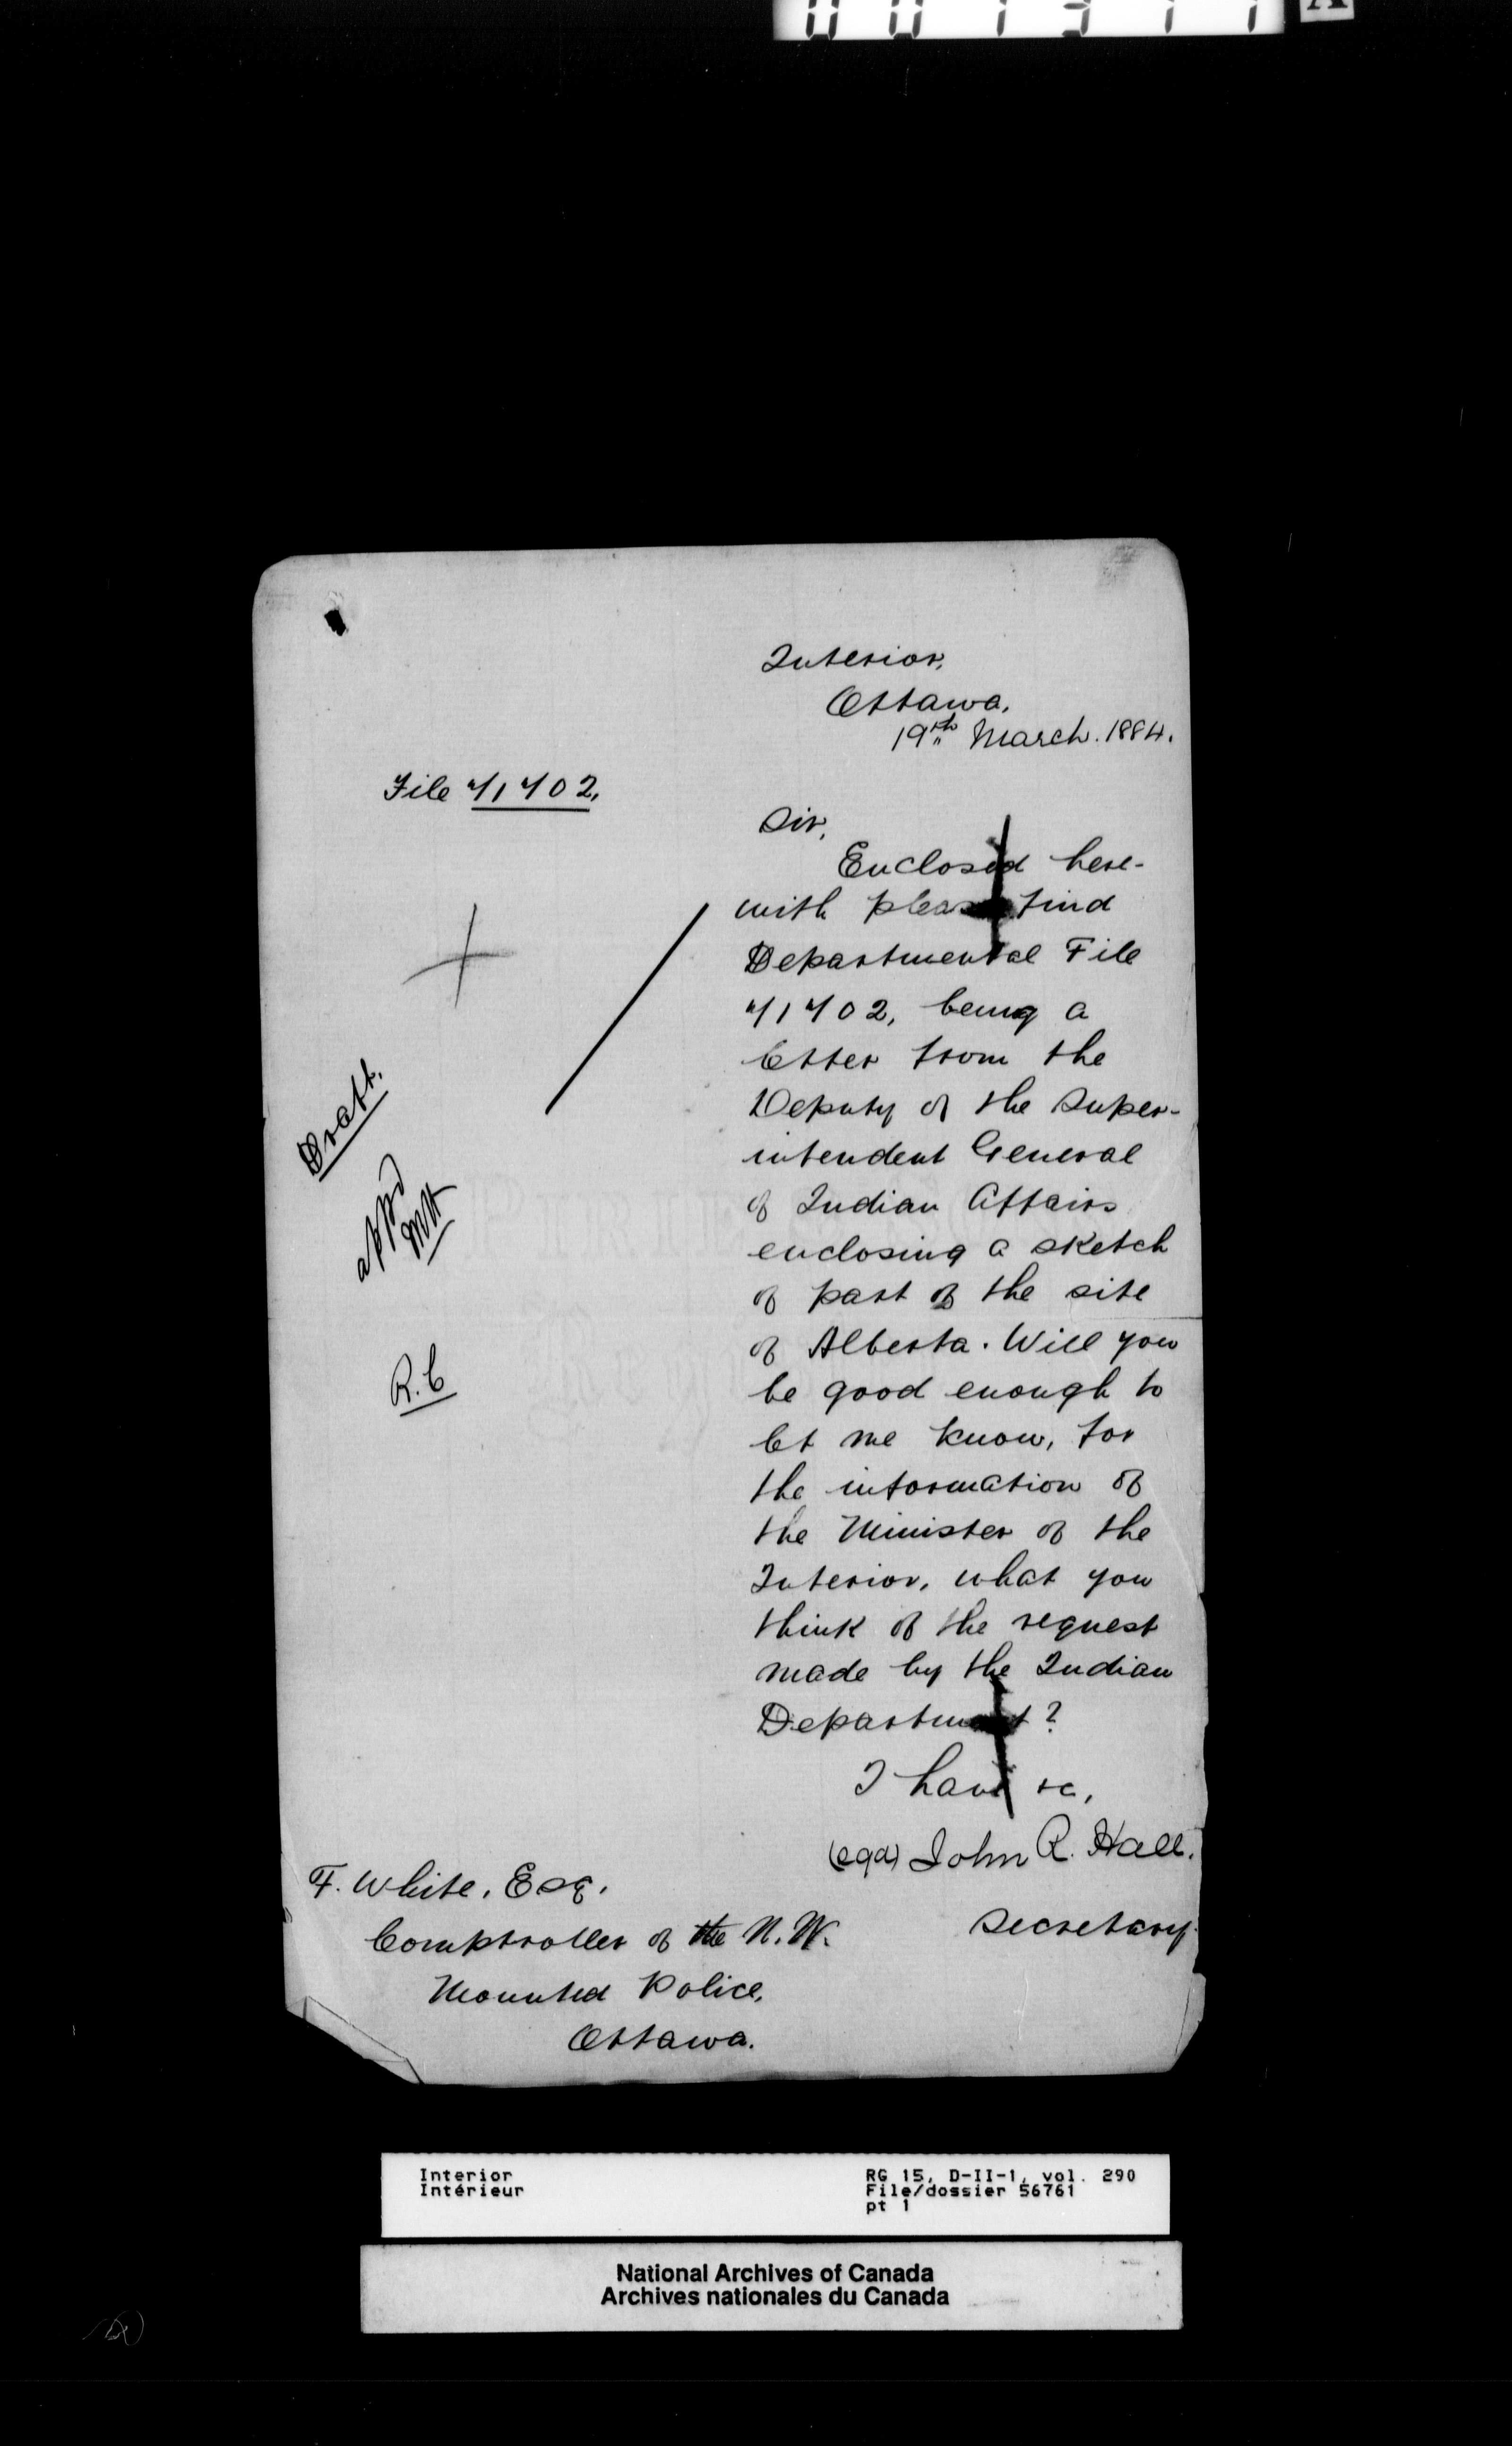 Interior,
Ottawa,
19th March. 1884.
File 71702,
Sir,
Enclosed here-
with please find
Departmental File
71702, being a
letter from the
Deputy of the Super-
intendent General
of Indian Affairs
enclosing a sketch
of part of the site
of Alberta. Will you
be good enough to
let me know, for
the information of
the Minister of the
Interior, what you
think of the request
made by the Indian
Department?
I have &c,
(sgd) John R. Hall.
Secretary.
Draft.
appd
R.C
F. White, Esq.
Comptroller of the N.W.
Mounted Police,
Ottawa.
Interior
Intérieur
RG 15, D-II-1, vol. 290
File/dossier 56761
pt 1
National Archives of Canada
Archives nationales du Canada